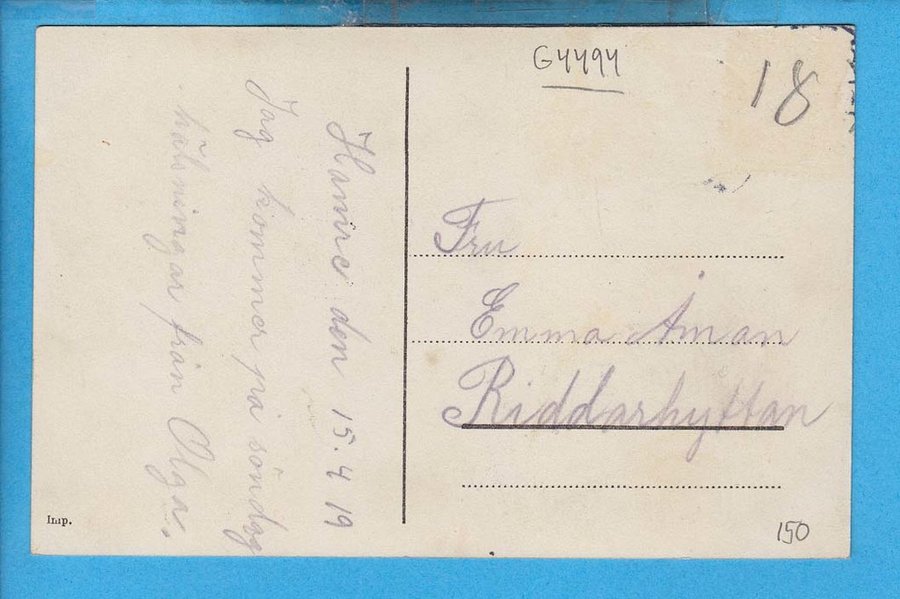 G4494
18
Hanire den 15.4 19
Jag kommer på söndag
hälsningar från Olga.
Fru
Emma Åman
Riddarhyttan
Imp.
150